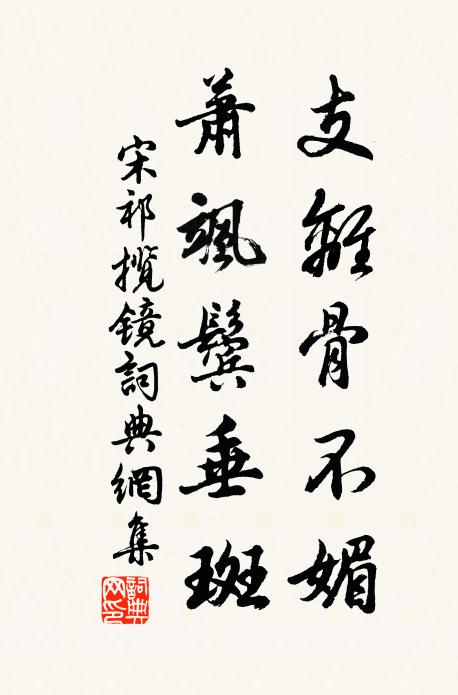 支離骨不媚
蕭颯鬢垂斑
宋祁攬鏡詞典網集
詞典網印